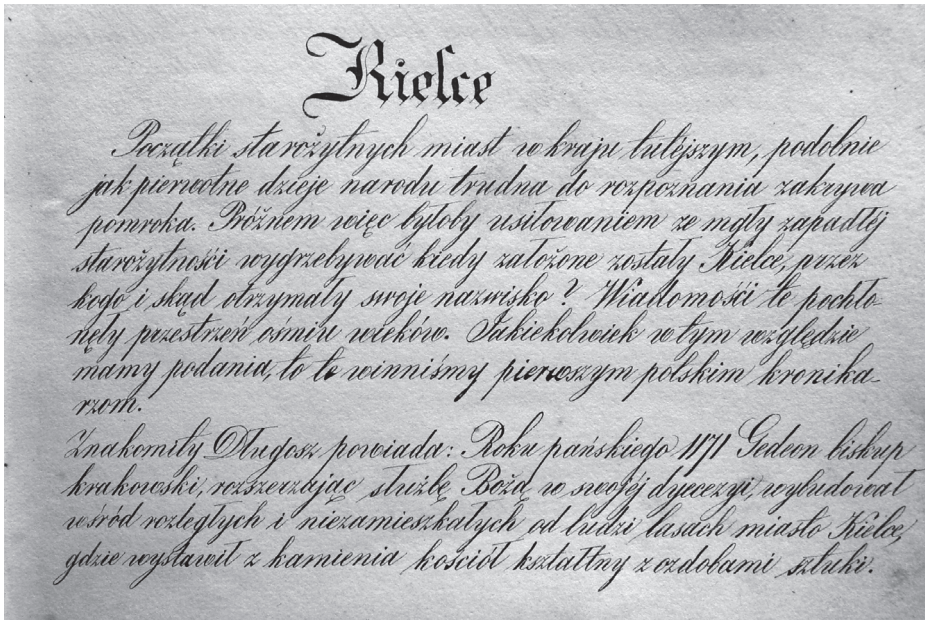 Kielce
Początki starożytnych miast w kraju tutéjszym, podobnie
jak pierwotne dzieje narodu trudna do rozpoznania zakrywa
pomroka. Próżnem więc byłoby usiłowaniem ze mgły zapadłéj
starożytności wygrzebywać kiedy założone zostały Kielce, przez
kogo i skąd otrzymały swoje nazwisko? Wiadomości te pochło-
nęły przestrzeń ośmiu wieków. Jakiekolwiek w tym względzie
mamy podania, to te winniśmy pierwszym polskim kronika-
rzom.
Znakomity Długosz powiada: Roku pańskiego 1171 Gedeon biskup
krakowski, rozszerzając służbę Bożą w swojéj dyecezyi, wybudował
wśród rozległych i niezamieszkałych od ludzi lasach miasto Kielce,
gdzie wystawił z kamienia kościół kształtny z ozdobami sztuki.